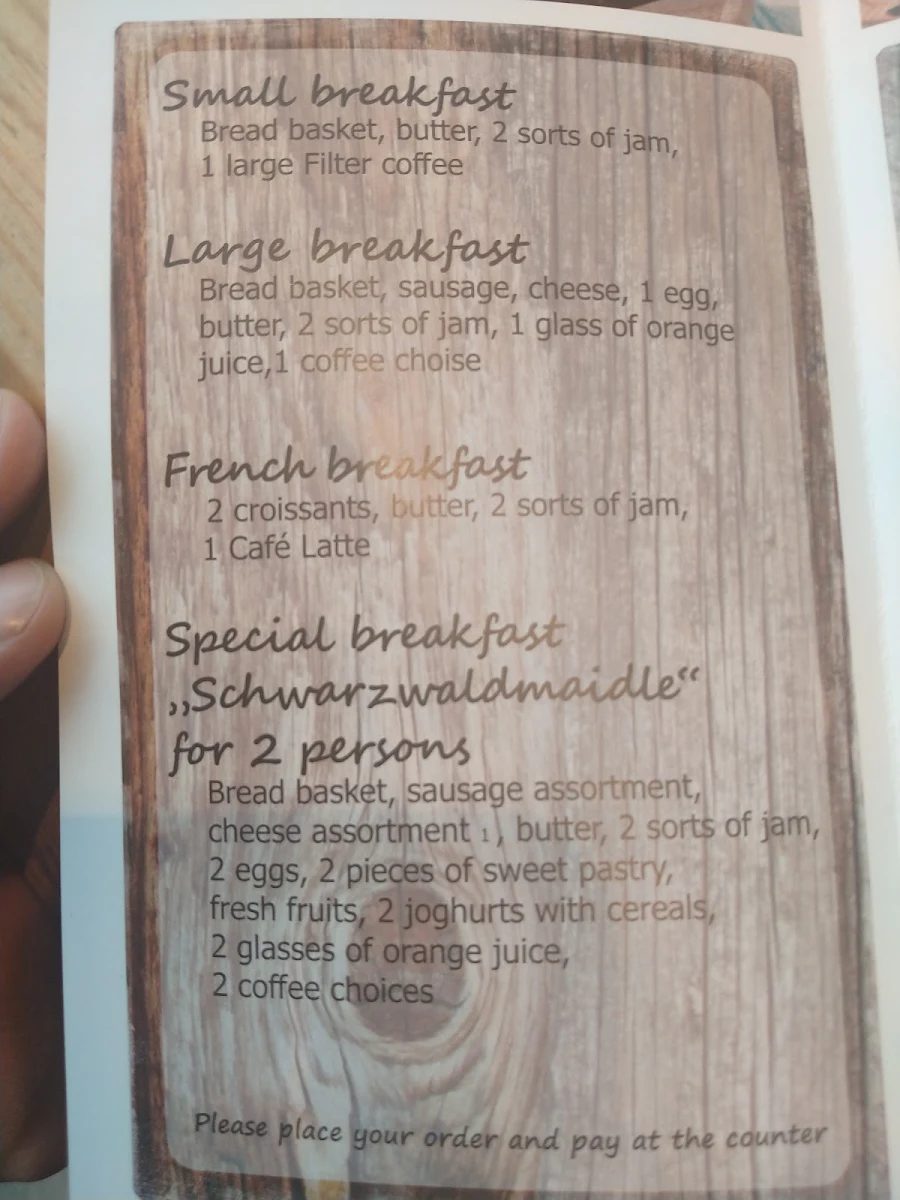 Small breakfast
Bread basket, butter, 2 sorts of jam,
1 large Filter coffee
Large breakfast
Bread basket, sausage, cheese, 1 egg,
butter, 2 sorts of jam, 1 glass of orange
juice,1 coffee choise
French breakfast
2 croissants, butter, 2 sorts of jam,
1 Café Latte
Special breakfast
„Schwarzwaldmaidle“
for 2 persons
Bread basket, sausage assortment,
cheese assortment 1, butter, 2 sorts of jam,
2 eggs, 2 pieces of sweet pastry,
fresh fruits, 2 joghurts with cereals,
2 glasses of orange juice,
2 coffee choices
Please place your order and pay at the counter